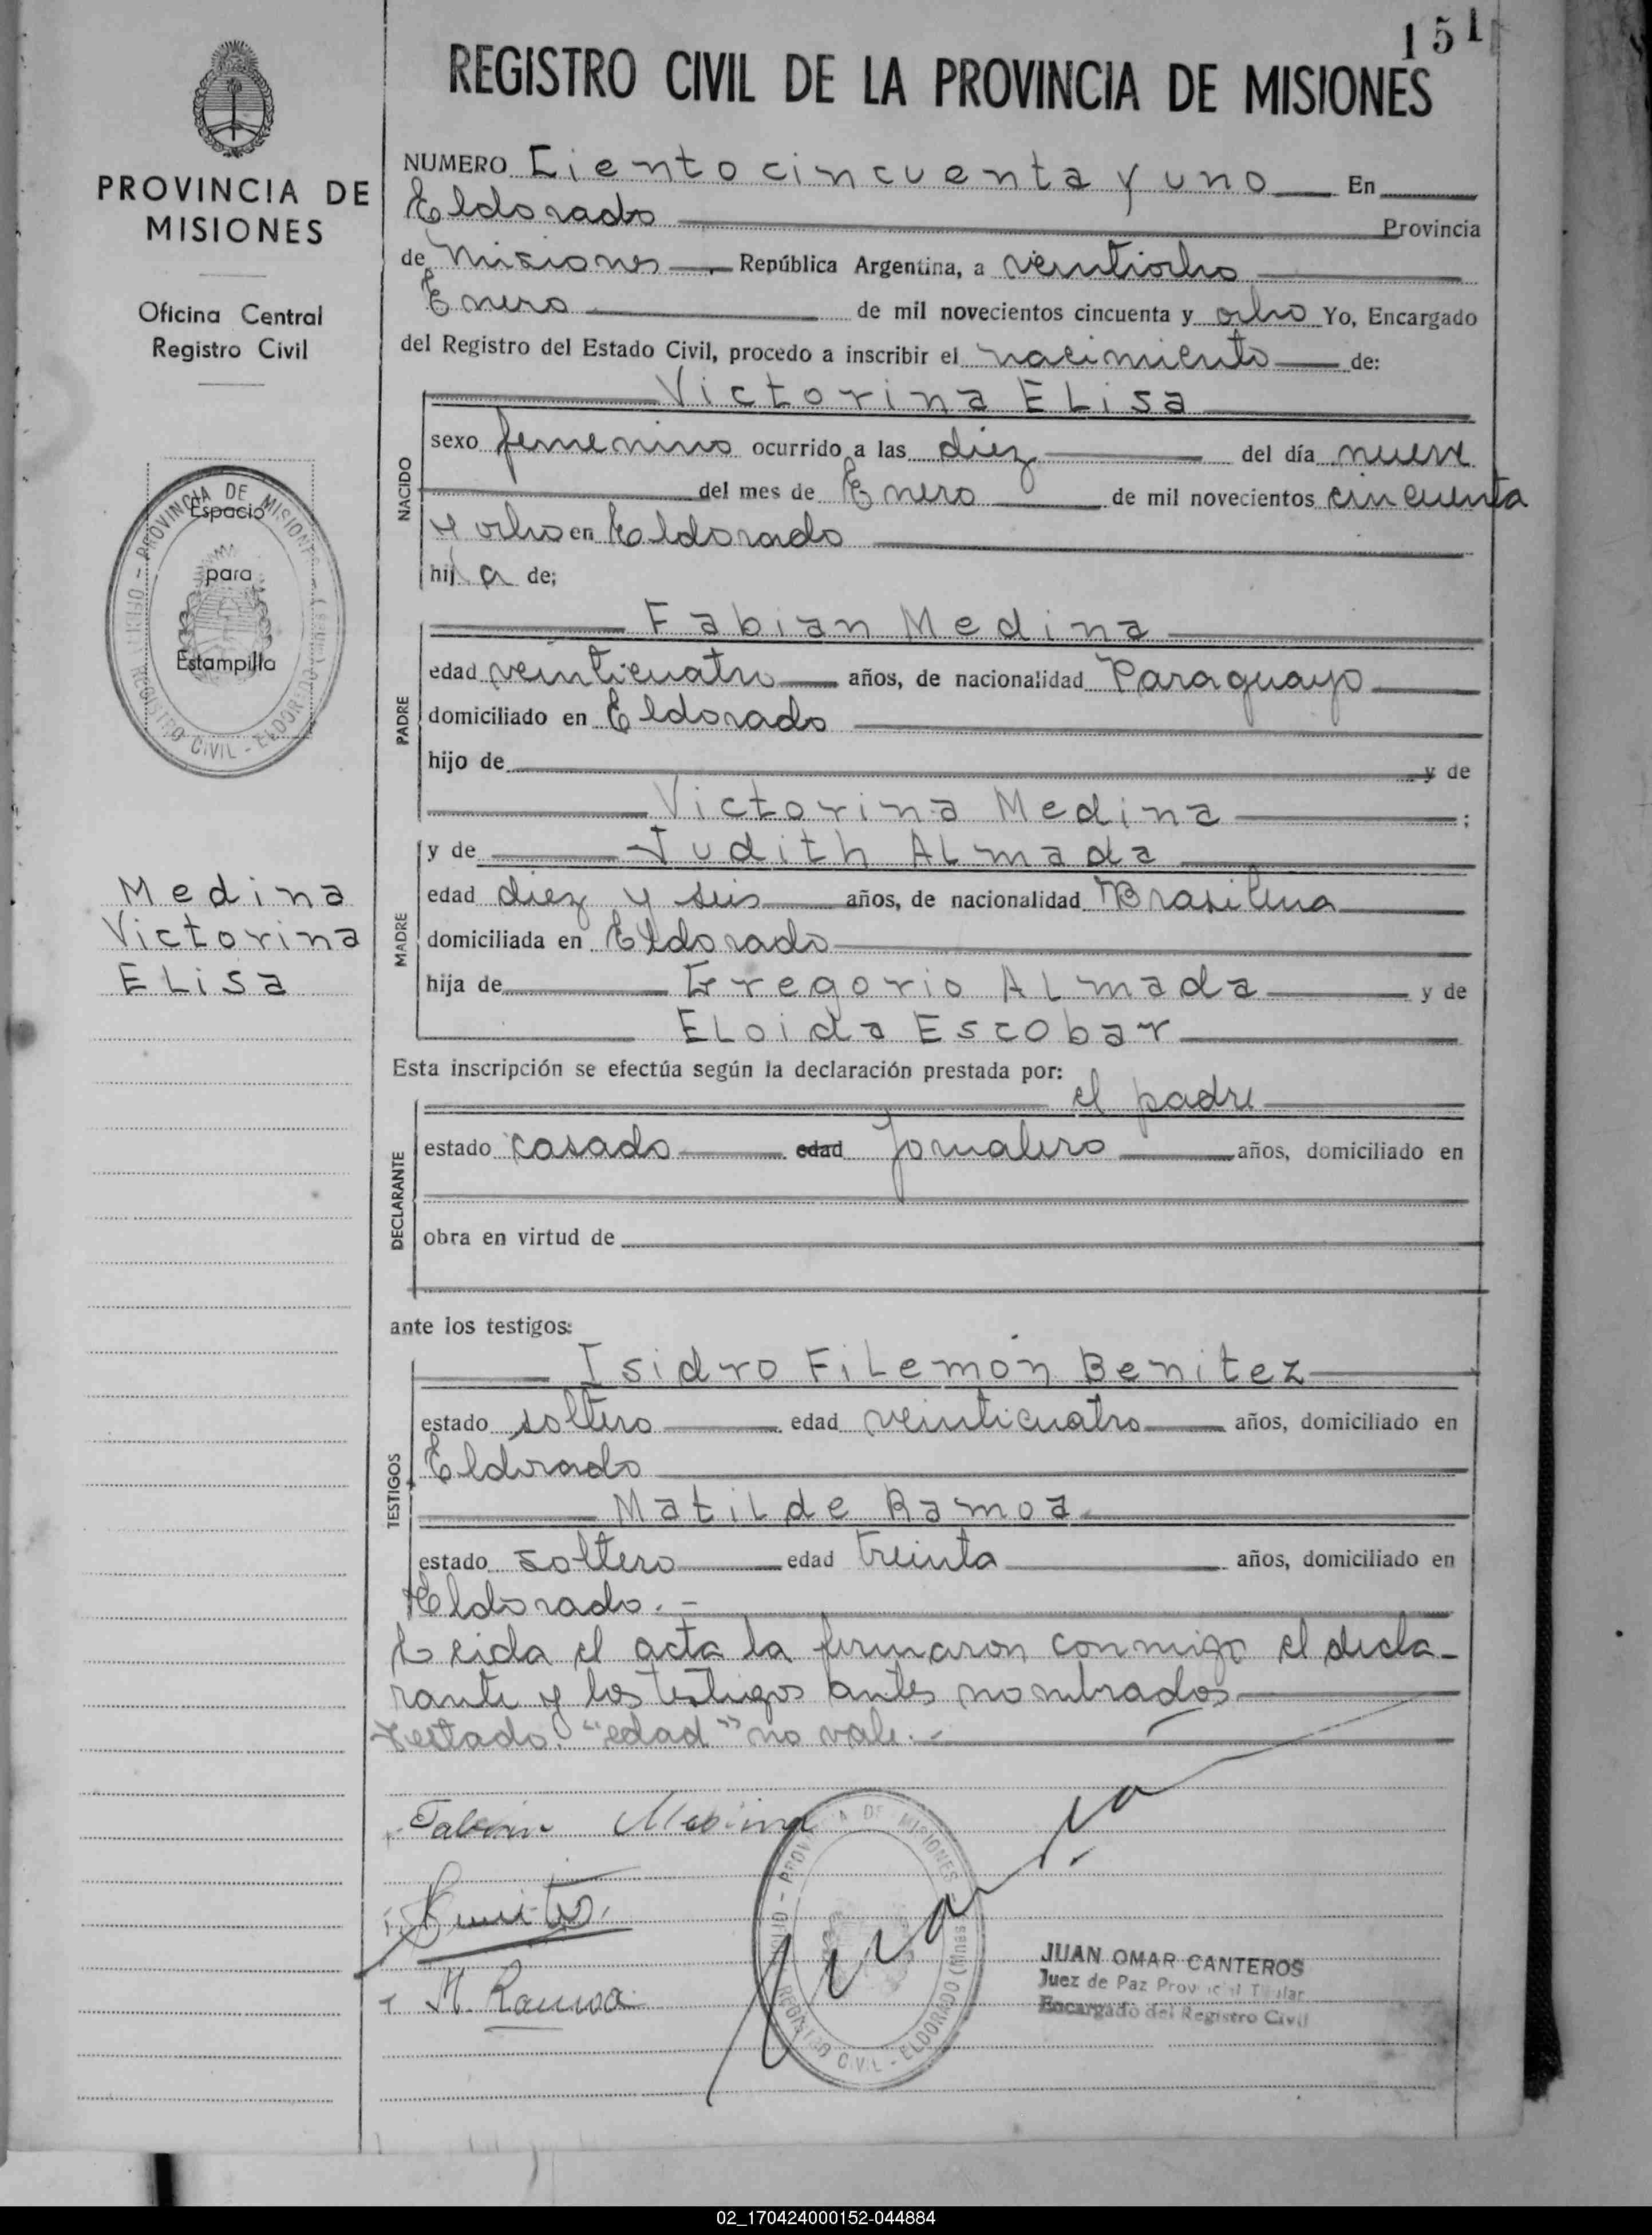 151
REGISTRO CIVIL DE LA PROVINCIA DE MISIONES
PROVINCIA DE
MISIONES
Oficina Central
Registro Civil
Espacio
para
Estampilla
PROVINCIA DE MISIONES
REGISTRO CIVIL - ELDORADO
Medina
Victorina
ELisa
NUMERO Ciento cincuenta y uno En
Eldorado Provincia
de Misiones República Argentina, a veintiocho
Enero de mil novecientos cincuenta y ocho Yo, Encargado
del Registro del Estado Civil, procedo a inscribir el nacimiento de:
NACIDO
Victorina ELisa
sexo femenino ocurrido a las diez del día nueve
del mes de Enero de mil novecientos cincuenta
y ocho en Eldorado
hija de;
PADRE
Fabian Medina
edad veinticuatro años, de nacionalidad Paraguayo
domiciliado en Eldorado
hijo de y de
Victorina Medina ;
MADRE
y de Judith ALmada
edad diez y seis años, de nacionalidad Brasilena
domiciliada en Eldorado
hija de Gregorio ALmada y de
ELoida Escobar
Esta inscripción se efectúa según la declaración prestada por:
DECLARANTE
el padre
estado casado edad Jornalero años, domiciliado en
obra en virtud de
ante los testigos:
TESTIGOS
Isidro FiLemón Benitez
estado soltero edad veinticuatro años, domiciliado en
Eldorado
MatiLde Ramoa
estado soltero edad treinta años, domiciliado en
Eldorado.-
Leida el acta la firmaron conmigo el decla-
rante y los testigos antes nombrados
Testado "edad" no vale.-
Fabian Medina
Benitez
M. Ramoa
PROVINCIA DE MISIONES
REGISTRO CIVIL - ELDORADO (Mnes
JUAN OMAR CANTEROS
Juez de Paz Provincial Titular
Encargado del Registro Civil
02_170424000152-044884